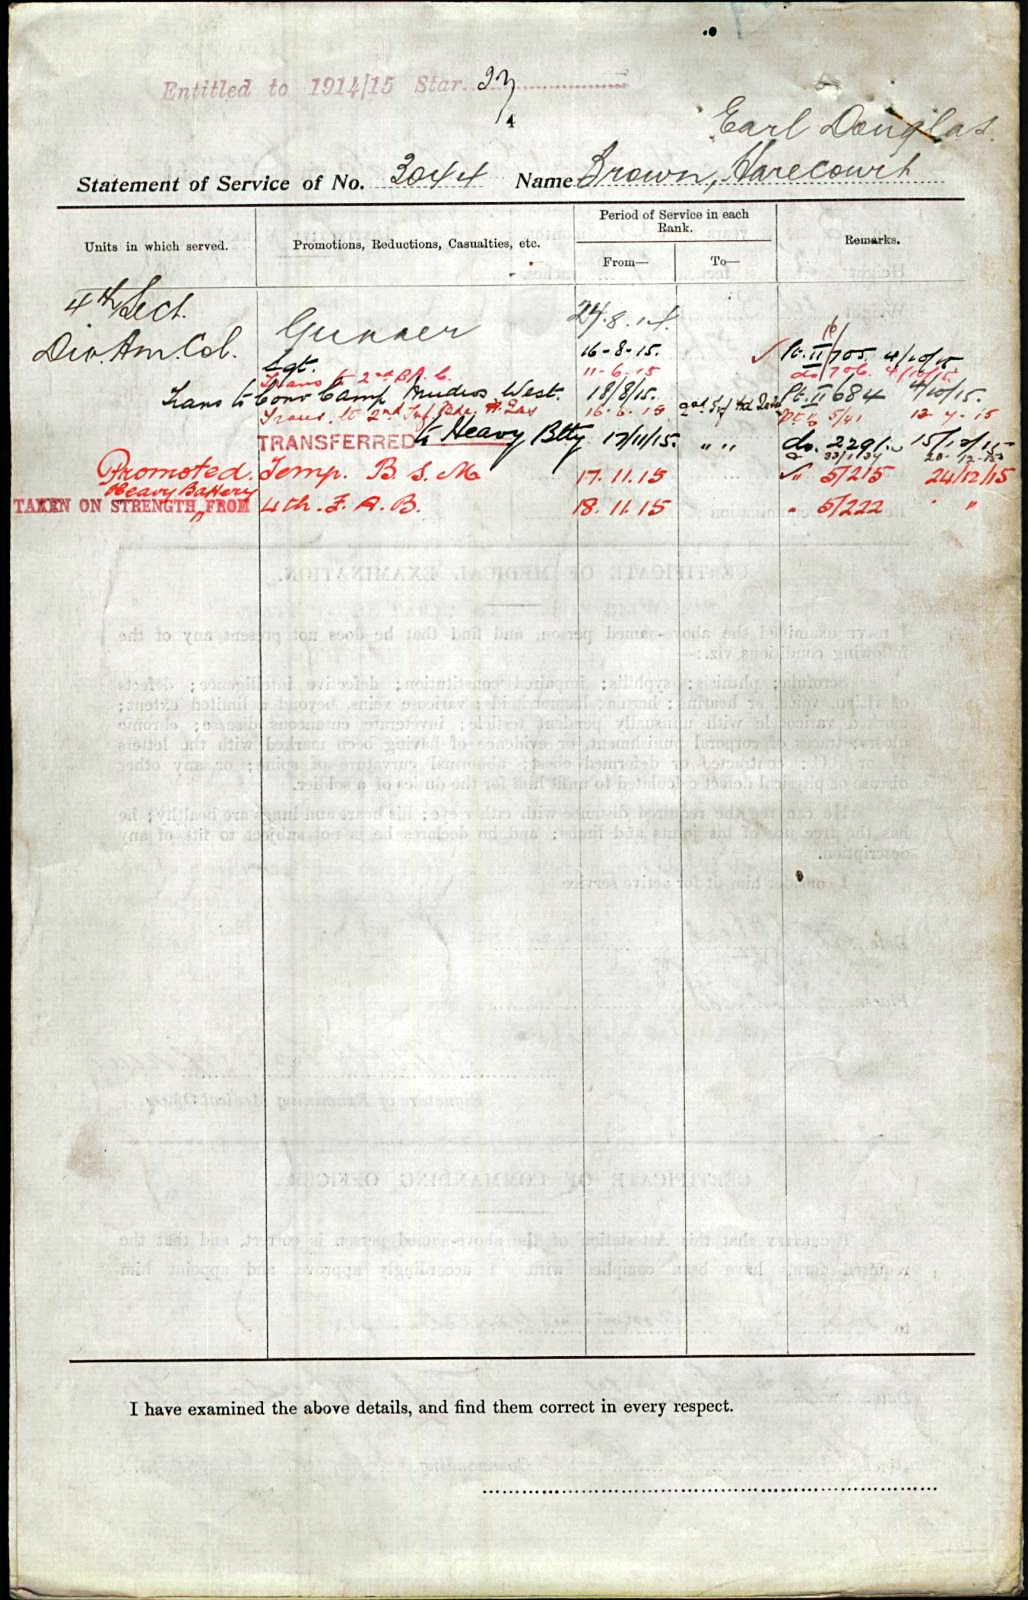 Entitled to 1914/15 Star
Earl Douglas.
Statement of Service of No. 3044 Name Brown, Harecourt
Units in which served.
Promotions, Reductions, Casualties, etc.
Period of Service in each Rank.
From—
To—
Remarks.
4th Sect.
Div. Am. Col.
Gunner 24.8.14.
Sgt. 16-8-15. Pt. II 705 4/10/15
Trans to 2nd B.A.C. 11-6-15 do 706 4/10/15
Trans to Conv Camp Mudros West. 18/8/15. Pt. II 684 4/10/15.
Trans. to 2nd Inf Bde H. Qrs 16-6-15 5/41 12-7-15
TRANSFERRED to Heavy Btty 17/11/15. " " do. 2291 15/12/15
20-12-15
Promoted. Temp. B. S. M 17.11.15 " 5/215 24/12/15
Heavy Battery
TAKEN ON STRENGTH FROM 4th. F. A. B. 18.11.15 " 5/222 "
I have examined the above details, and find them correct in every respect.